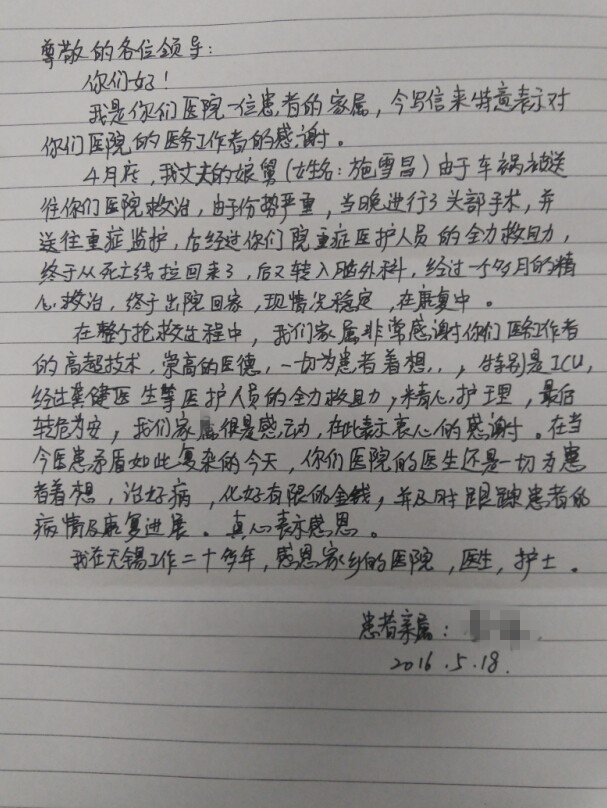 尊敬的各位领导：
你们好！
我是你们医院一位患者的家属，今写信来特意表示对
你们医院的医务工作者的感谢。
4月底，我丈夫的娘舅（姓名：施雪昌）由于车祸被送
往你们医院救治，由于伤势严重，当晚进行了头部手术，并
送往重症监护，后经过你们院重症医护人员的全力救助，
终于从死亡线拉回来了，后又转入脑外科，经过一个多月的精
心救治，终于出院回家，现情况稳定，在康复中。
在整个抢救过程中，我们家属非常感谢你们医务工作者
的高超技术，崇高的医德，一切为患者着想，，特别是ICU，
经过龚健医生等医护人员的全力救助，精心护理，最后
转危为安，我们家属很是感动，在此表示衷心的感谢。在当
今医患矛盾如此复杂的今天，你们医院的医生还是一切为患
者着想，治好病，化好有限的金钱，并及时跟踪患者的
病情及康复进展。真心表示感恩。
我在无锡工作二十多年，感恩家乡的医院，医生，护士。
患者亲属：
2016.5.18.